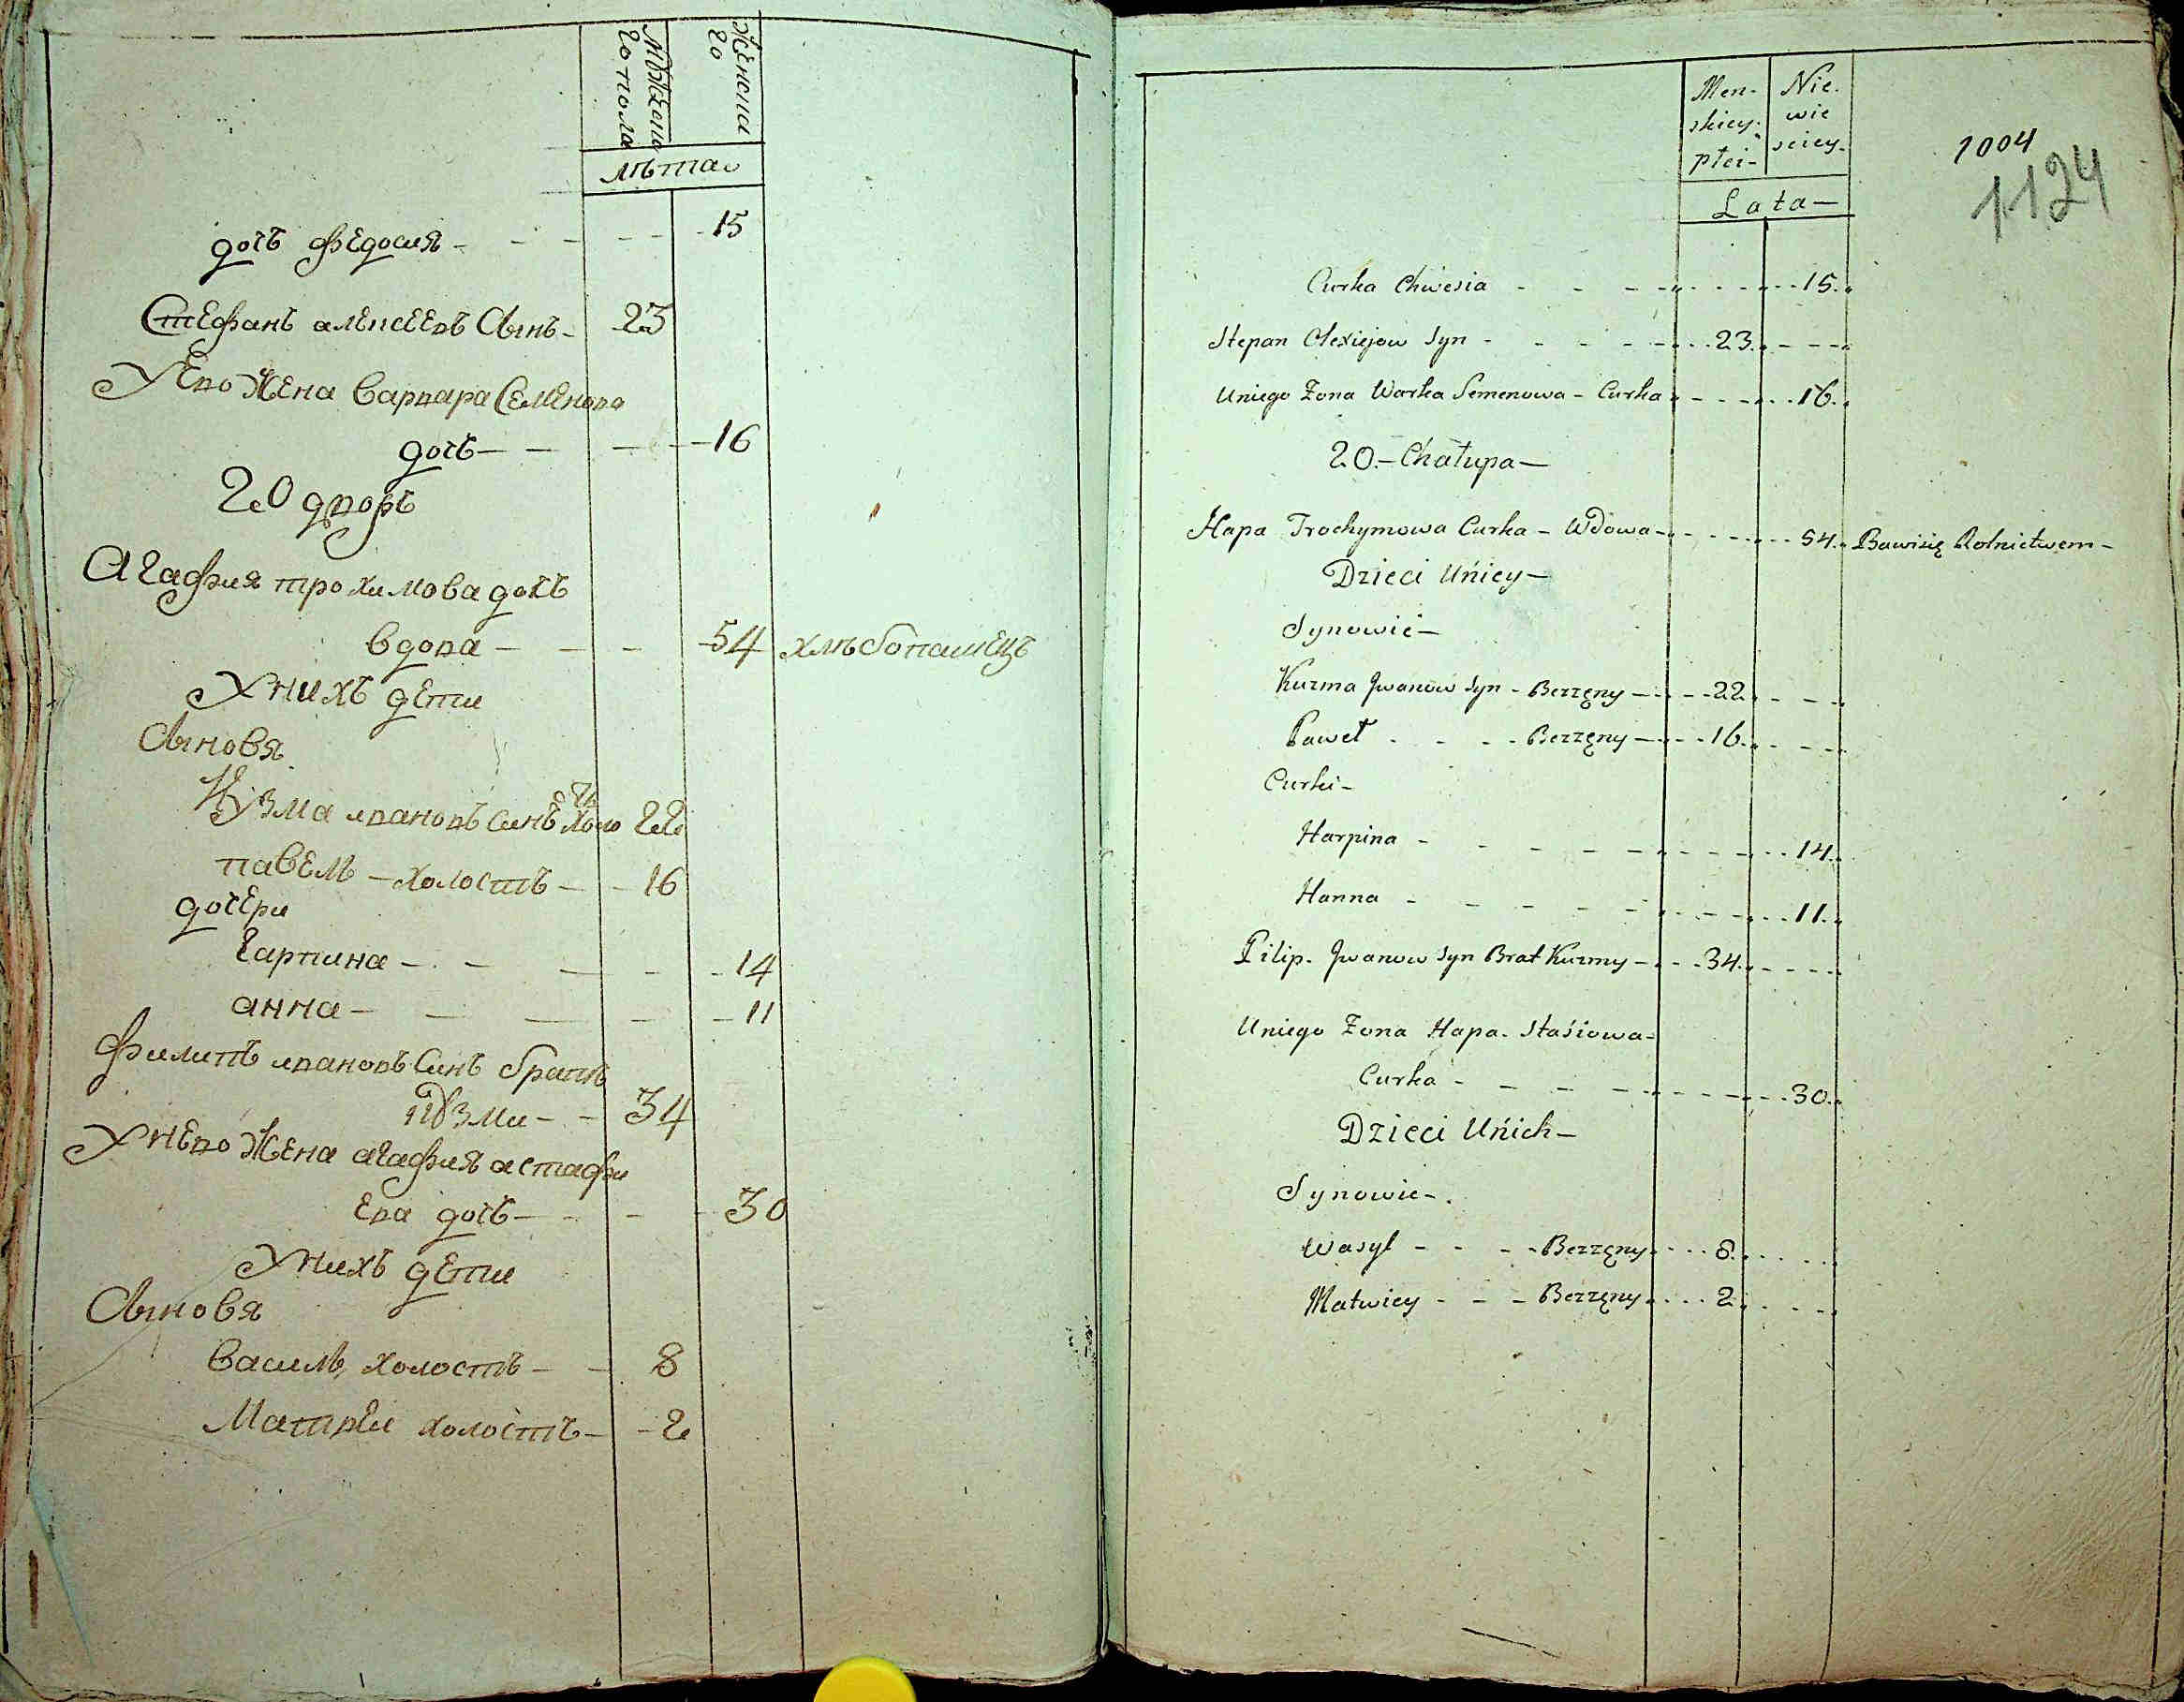 Мужеска
го пола
Женска
го
лѣта
дочь федосия - - - - - 15
Стефанъ алексеевъ Сынъ - 23
У Его Жена варвара Семенова
дочь - - - - 16
20 дворъ
Агафия трохимова дочь
вдова - - - - 54 хлѣбопашецъ
У нихъ дети
Сыновя
Кузма ивановъ синъ холостъ 22
павелъ - холостъ - - 16
дочери
гарпина - - - - - 14
анна - - - - - 11
филипъ ивановъ Синъ братъ
кузми - - 34
У нЕго Жена агафия астафи
ева дочь - - - - 30
У нихъ дети
Сыновя
василь холостъ - - 8
Матвеи холостъ - - 2
Men-
skiey
płci-
Nie-
wie
sciey-
Lata-
1004
1124
Curka Chwesia - - - - 15.
Stepan Olexiejow Syn - - - - 23. - - -
Uniego Zona Warka Semenowa - Curka - - - 16.
20.- Chałupa -
Hapa Trochymowa Curka - Wdowa - - - - 54. Bawisię Rolnictwem -
Dzieci Uniey -
Synowie -
Kuzma Jwanow Syn - Bezzęny - - - 22. - - -
Paweł - - - Bezzęny - - - 16. - - -
Curki -
Harpina - - - - - - - 14.
Hanna - - - - - - - 11.
Pilip. Jwanow Syn Brat Kuzmy - - - 34. - - -
Uniego Zona Hapa. Stasiowa-
Curka - - - - - - - 30.
Dzieci Unich -
Synowie -
Wasyl - - - - Bezzęny - - - 8. - - -
Matwiey - - - Bezzęny - - - 2. - - -